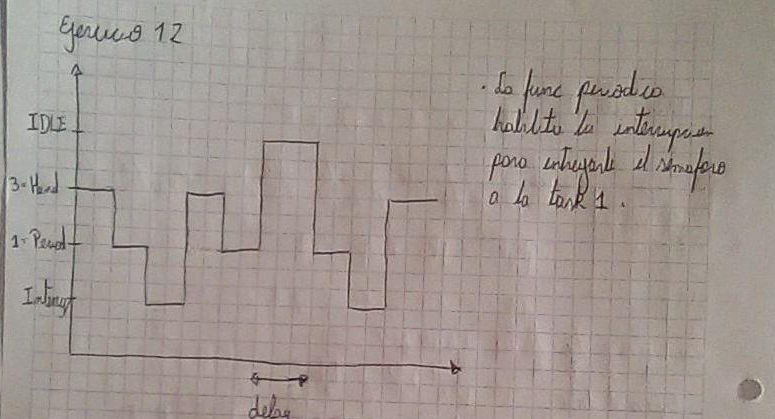 Ejercicio 12
IDLE
3-Hand
1-Period
Interrup
delay
. La func periodica
habilita la interrupcion
para entregarle el semaforo
a la task 1.